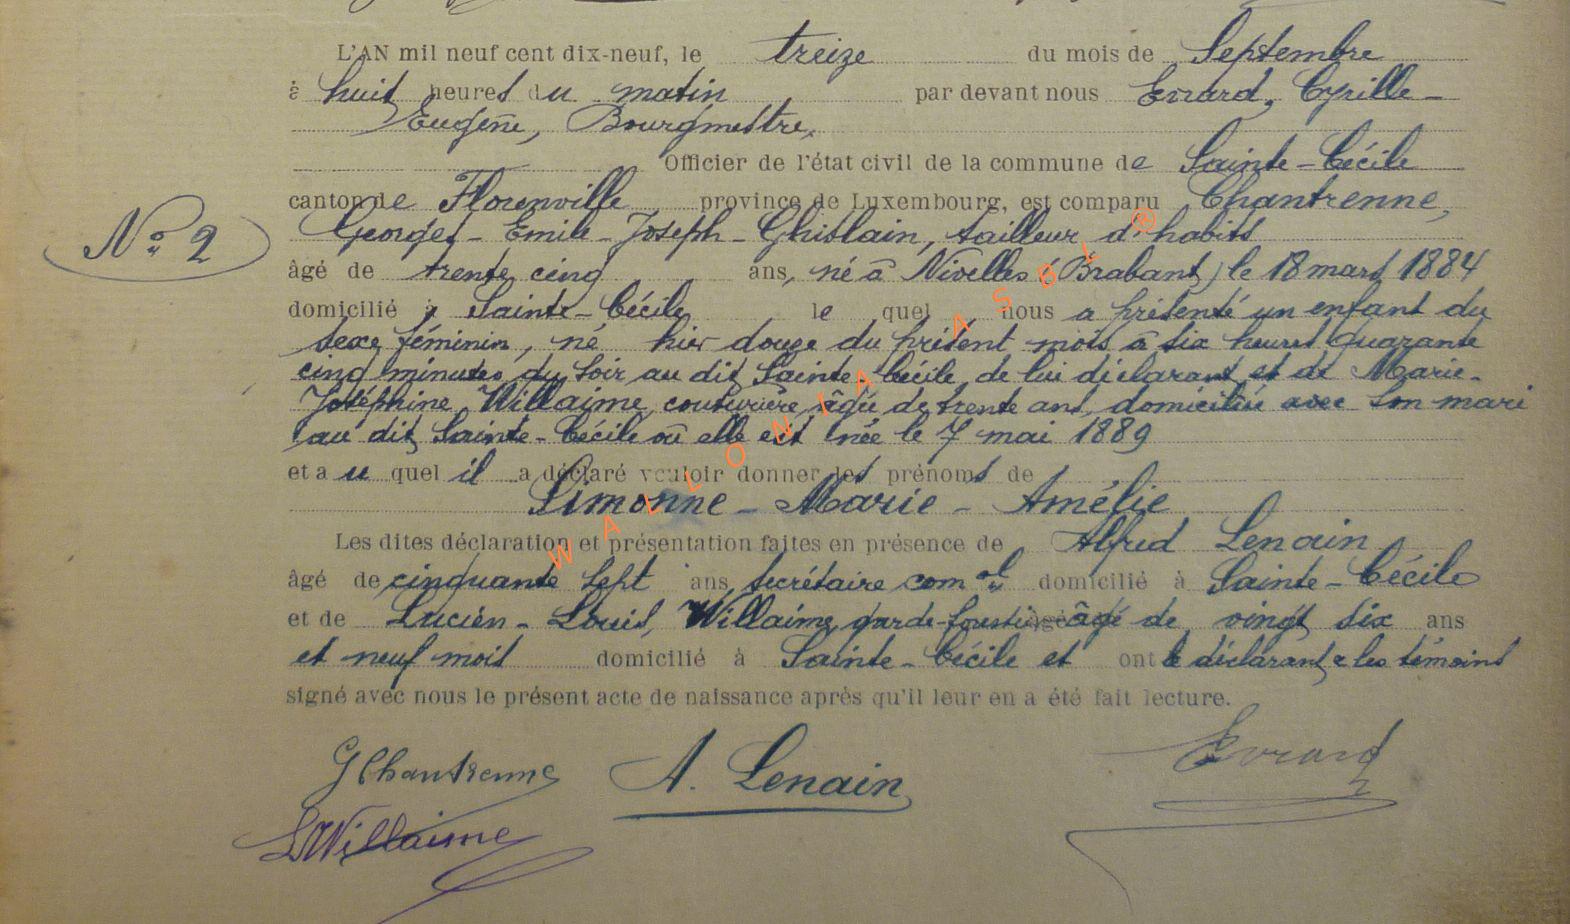 L'AN mil neuf cent dix-neuf, le treize du mois de Septembre
à huit heures du matin par devant nous Evrard, Cyrille-
Eugène, Bourgmestre,
Officier de l'état civil de la commune de Sainte-Cécile
canton de Florenville province de Luxembourg, est comparu Chantrenne,
Georges-Emile-Joseph-Ghislain, tailleur d'habits
N° 2
âgé de trente cinq ans, né à Nivelles (Brabant) le 18 mars 1884
domicilié à Sainte-Cécile le quel nous a présenté un enfant du
sexe féminin, né hier douze du présent mois à six heures quarante
cinq minutes du soir au dit Sainte-Cécile de lui déclarant et de Marie-
Joséphine Willaime, couturière âgée de trente ans, domiciliée avec son mari
au dit Sainte-Cécile où elle est née le 7 mai 1889
et au quel il a déclaré vouloir donner les prénoms de
Simonne-Marie-Amélie
Les dites déclaration et présentation faites en présence de Alfred Lenain
âgé de cinquante sept ans, secrétaire com al domicilié à Sainte-Cécile
et de Lucien-Louis, Willaime, garde-forestier âgé de vingt six ans
et neuf mois domicilié à Sainte-Cécile et ont le déclarant & les témoins
signé avec nous le présent acte de naissance après qu'il leur en a été fait lecture.
G Chantrenne A. Lenain Evrard
L Willaime
WALLONIA ASBL ®